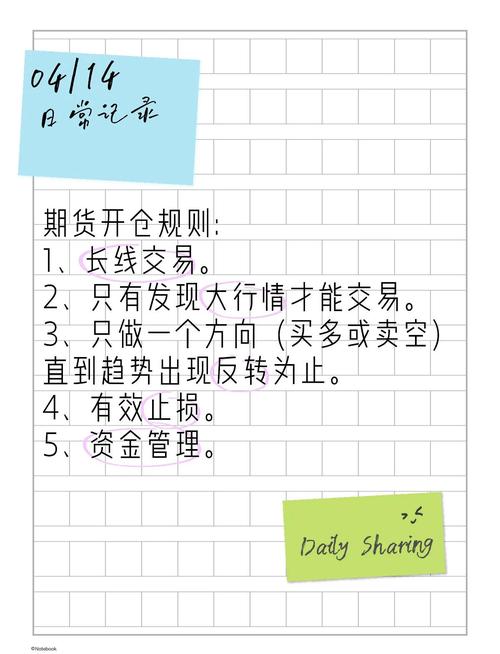 04/14
日常记录
期货开仓规则:
1、长线交易。
2、只有发现大行情才能交易。
3、只做一个方向（买多或卖空）
直到趋势出现反转为止。
4、有效止损。
5、资金管理。
Daily Sharing
©Notebook